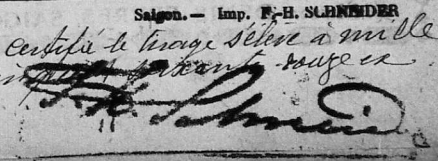 Saigon.— Imp. F.-H. SCHNEIDER
certifié le tirage s'élève à mille
soixante
F. H. Schneider